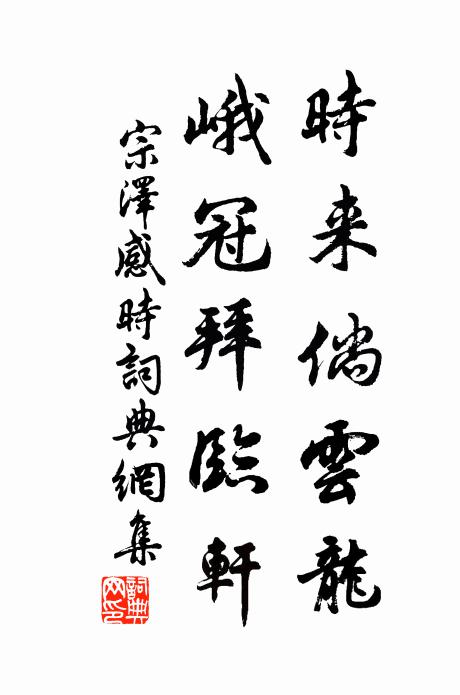 時来倘雲龍
峨冠拜臨軒
宗澤感時詞典網集
詞典網印